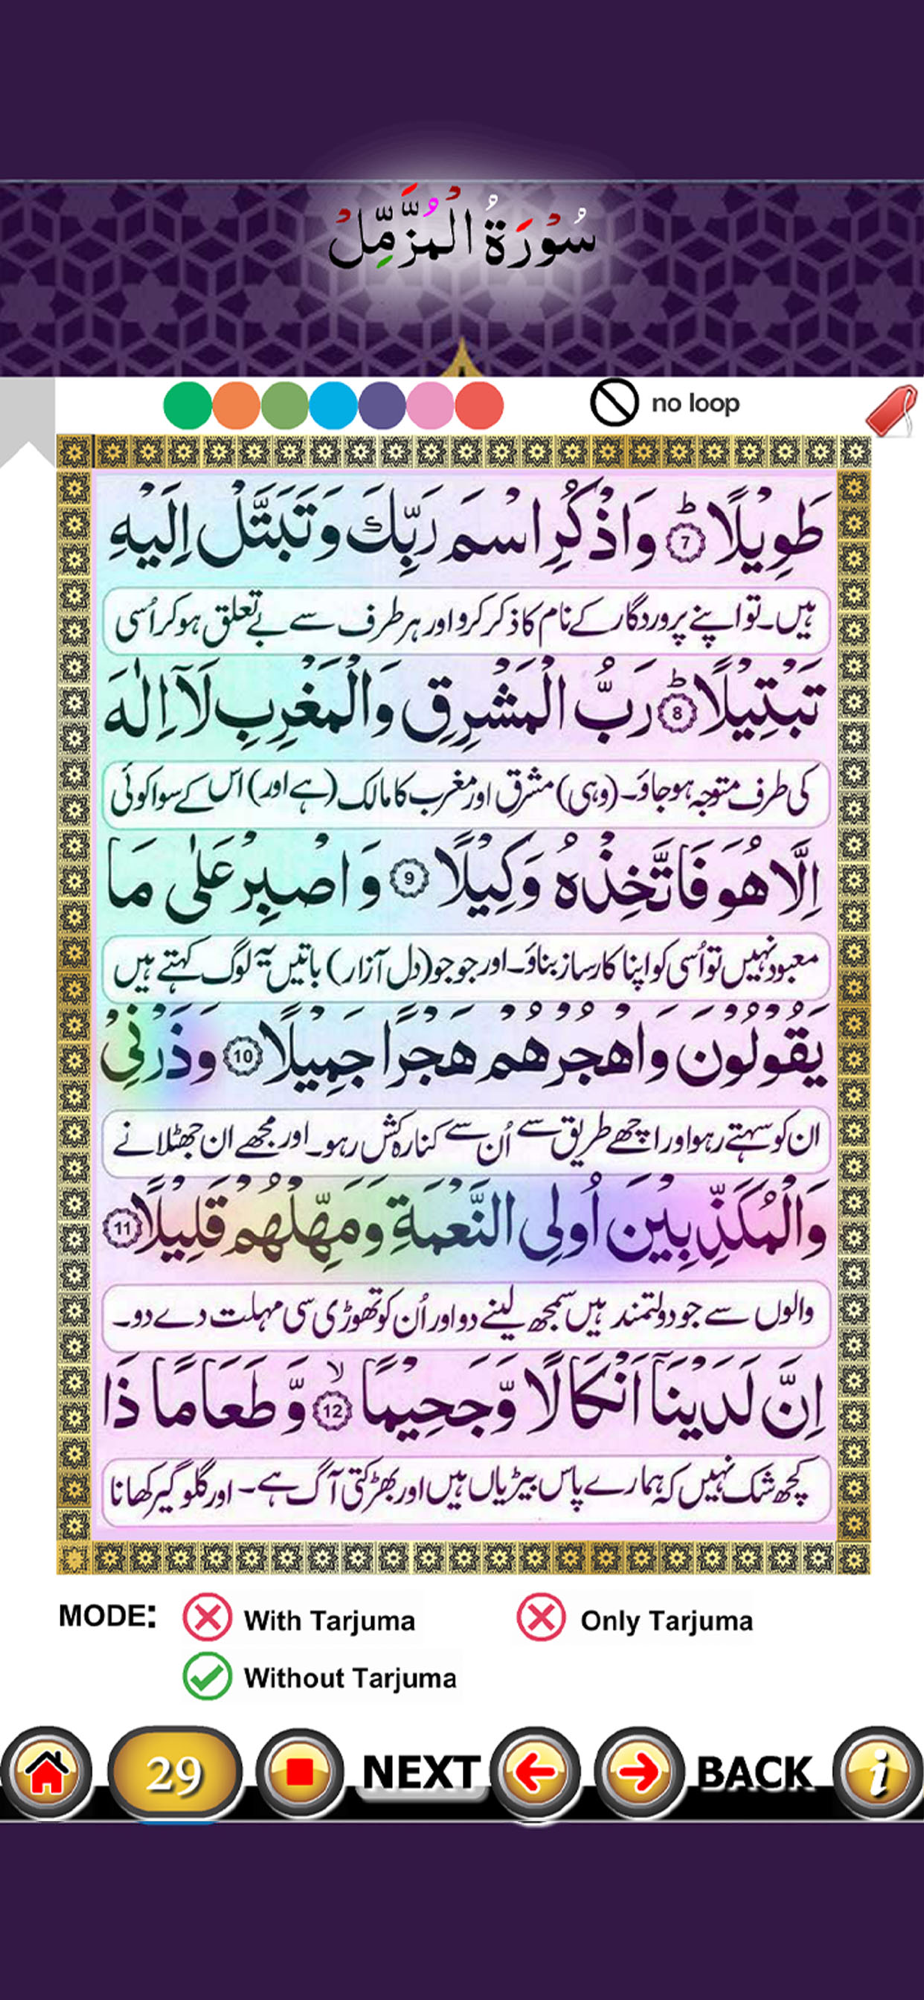 سُوْرَةُ الْمُزَّمِّلْ
no loop
طَوِيْلًا ؕ 7 وَاذْكُرِ اسْمَ رَبِّكَ وَتَبَتَّلْ اِلَيْهِ
ہیں۔تو اپنے پروردگار کے نام کا ذکر کرو اور ہر طرف سے بے تعلق ہو کر اُسی
تَبْتِيْلًا ؕ 8 رَبُّ الْمَشْرِقِ وَالْمَغْرِبِ لَآ اِلٰهَ
کی طرف متوجہ ہو جاؤ۔ (وہی) مشرق اور مغرب کا مالک (ہے اور) اس کے سوا کوئی
اِلَّا هُوَ فَاتَّخِذْهُ وَكِيْلًا 9 وَاصْبِرْ عَلٰى مَا
معبود نہیں تو اُسی کو اپنا کارساز بناؤ۔ اور جو جو (دل آزار) باتیں یہ لوگ کہتے ہیں
يَقُوْلُوْنَ وَاهْجُرْهُمْ هَجْرًا جَمِيْلًا 10 وَذَرْنِيْ
ان کو سہتے رہو اور اچھے طریق سے اُن سے کنارہ کش رہو۔ اور مجھے ان جھٹلانے
وَالْمُكَذِّبِيْنَ اُولِى النَّعْمَةِ وَمَهِّلْهُمْ قَلِيْلًا 11
والوں سے جو دولتمند ہیں سمجھ لینے دو اور اُن کو تھوڑی سی مہلت دے دو۔
اِنَّ لَدَيْنَآ اَنْكَالًا وَّجَحِيْمًا ۙ 12 وَّطَعَامًا ذَا
کچھ شک نہیں کہ ہمارے پاس بیڑیاں ہیں اور بھڑکتی آگ ہے۔ اور گلوگیر کھانا
MODE: With Tarjuma Only Tarjuma
Without Tarjuma
29 NEXT BACK i